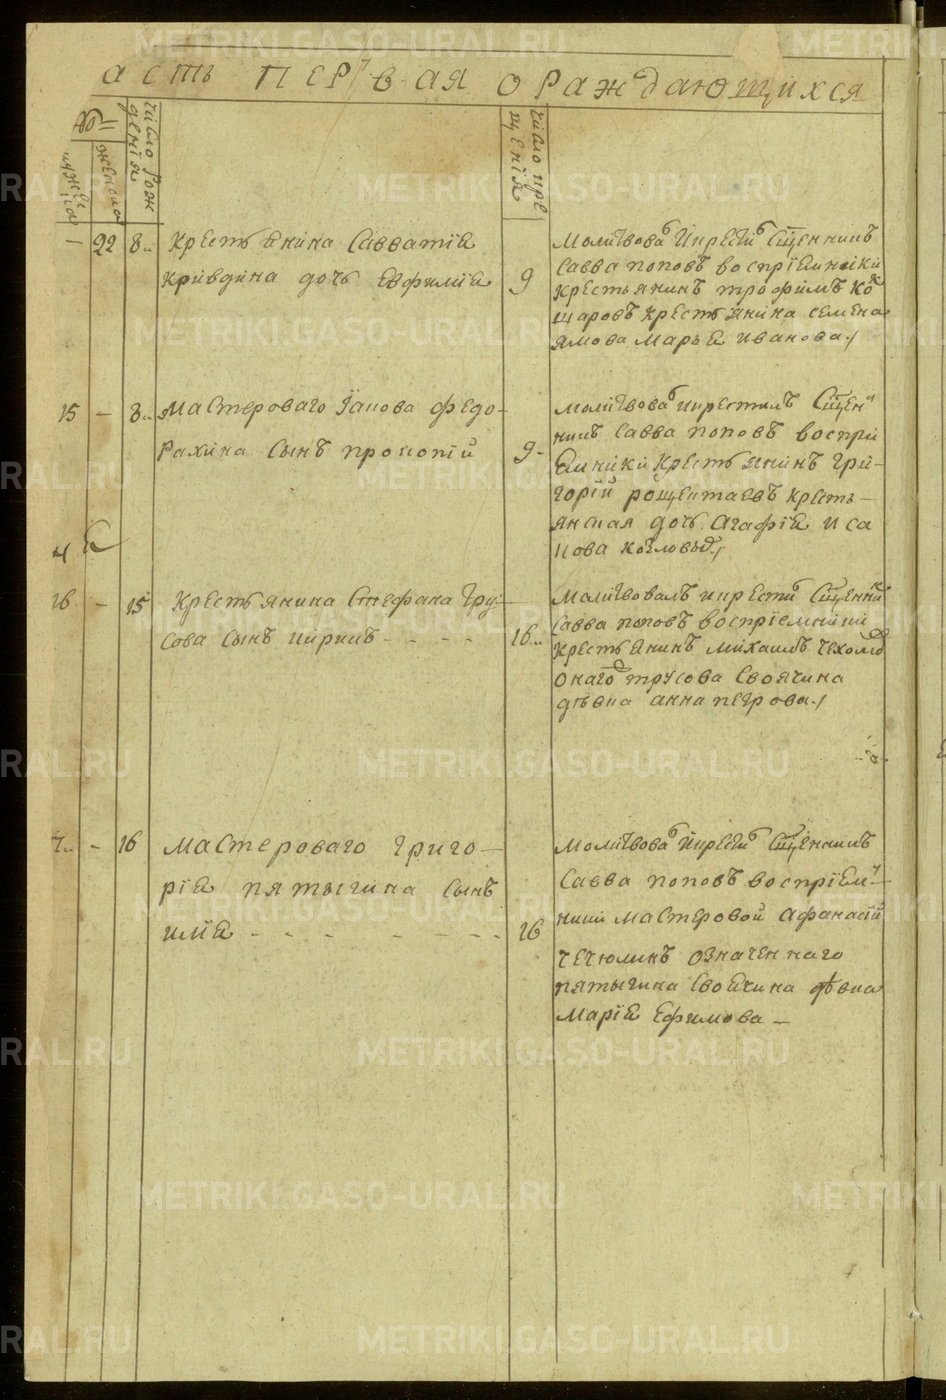 асть перьвая о раждающихся
мужес
ка
женска
число рож
дения
число кре
щения
— 22 8 Крестьянина Савватия
Кривдина дочь Евфимия
9
Молитвова и крестил Сщенникъ
Савва поповъ восприемники
Крестьянинъ трофимъ Ко
щаровъ крестьянина семена
ямова марья иванова
15 — 8 Мастероваго Iакова Федо-
рахина сынъ прокопiй
9
Молитвова и крестилъ Сщен
никъ Савва поповъ воспри
емники Крестьянинъ гри-
горiй рощектаевъ кресть-
янская дочь Агафiя иса
кова козловыхъ
16 — 15 Крестьянина Стефана Тру-
сова сынъ кирикъ - - - -
16
Молитвовалъ и крести Сщенник
Савва поповъ восприемники
крестьянинъ михаилъ чехомо
онаго трусова своячина
девка анна петрова
— 16 Мастероваго григо-
рiя пятыгина сынъ
илiя - - - - - - -
16
Молитвова и крести Сщенникъ
Савва поповъ восприем-
ники мастеровой афанасiй
чечюлинъ означеннаго
пятыгина своячина девка
Марiя Ефимова —
METRIKI.GASO-URAL.RU